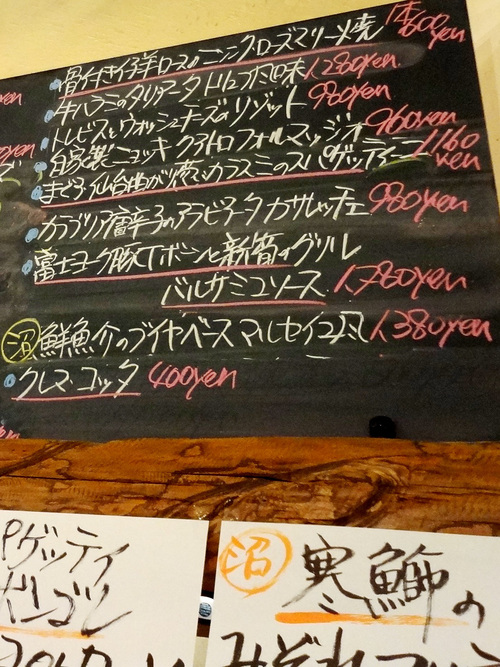 骨付き仔羊ロースのニンニクローズマリー焼 1本600yen
牛ハラミのタリアータ トリュフ風味 1280yen
トレビスとウォッシュチーズのリゾット 980yen
自家製ニョッキ クアトロフォルマッジオ 960yen
まぐろ 仙台曲がり葱とカラスミのスパゲッティーニ 1160yen
カラブリア唐辛子のアラビアータ カサレッチェ 980yen
富士ヨーク豚Tボーンと新筍のグリル
バルサミコソース 1,780yen
沼 鮮魚介のブイヤベース マルセイユ風 1,380yen
クレマ コッタ 400yen
yen
yen
パゲッティ
ボンゴレ
沼 寒鰤の
みぞれ